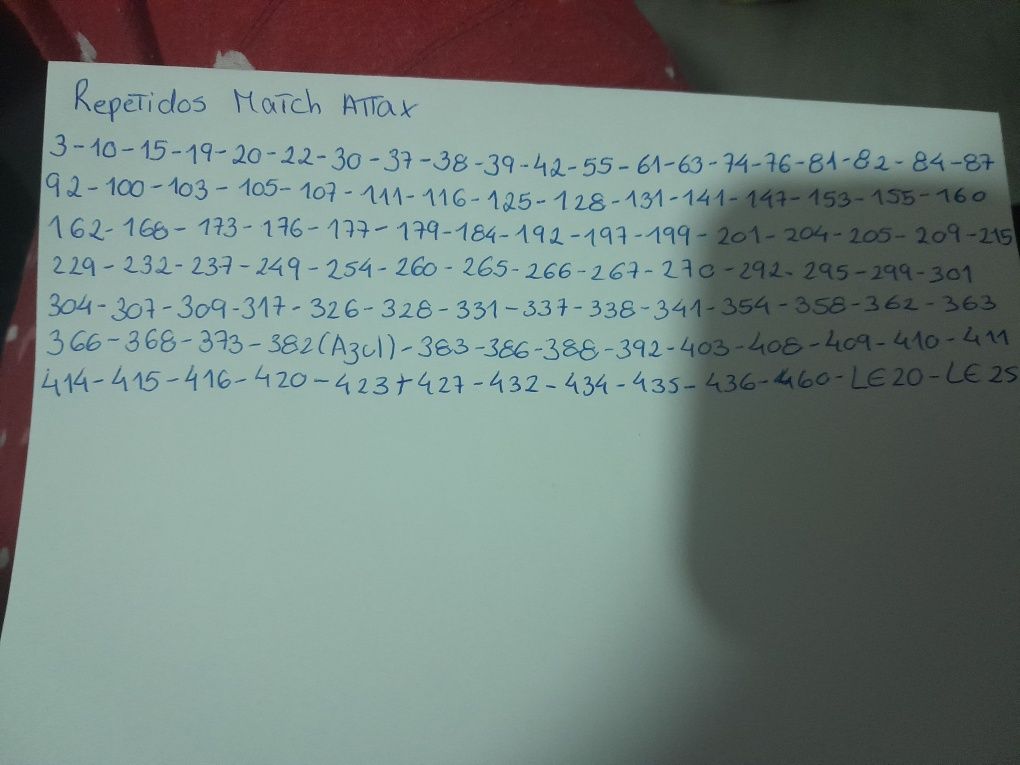 Repetidos Match Attax
3-10-15-19-20-22-30-37-38-39-42-55-61-63-74-76-81-82-84-87
92-100-103-105-107-111-116-125-128-131-141-147-153-155-160
162-168-173-176-177-179-184-192-197-199-201-204-205-209-215
229-232-237-249-254-260-265-266-267-270-292-295-299-301
304-307-309-317-326-328-331-337-338-341-354-358-362-363
366-368-373-382(Azul)-383-386-388-392-403-408-409-410-411
414-415-416-420-423+427-432-434-435-436-460-LE20-LE25